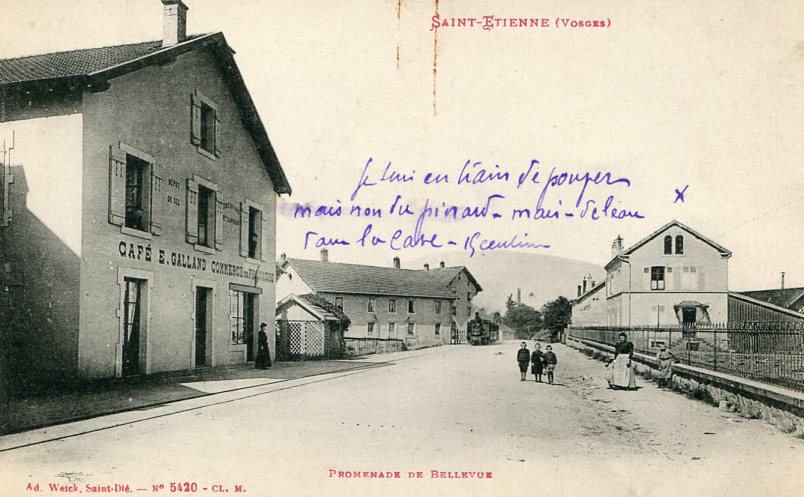 SAINT-ETIENNE (VOSGES)
je suis en train de pomper
mais non du pinard - mais - de l'eau
dans la Cave -
DEPOT
DE SEL
CAFÉ E. GALLAND COMMERCE DE
PROMENADE DE BELLEVUE
Ad. Weick, Saint-Dié. — N° 5420 - CL. M.